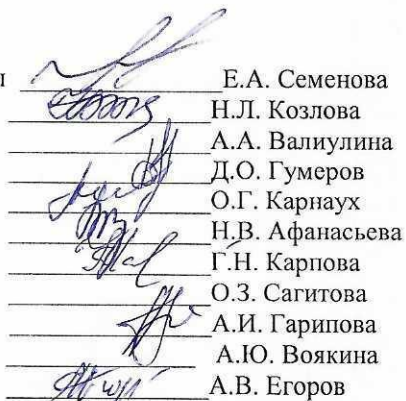 ы Е.А. Семенова
Н.Л. Козлова
А.А. Валиулина
Д.О. Гумеров
О.Г. Карнаух
Н.В. Афанасьева
Г.Н. Карпова
О.З. Сагитова
А.И. Гарипова
А.Ю. Воякина
А.В. Егоров